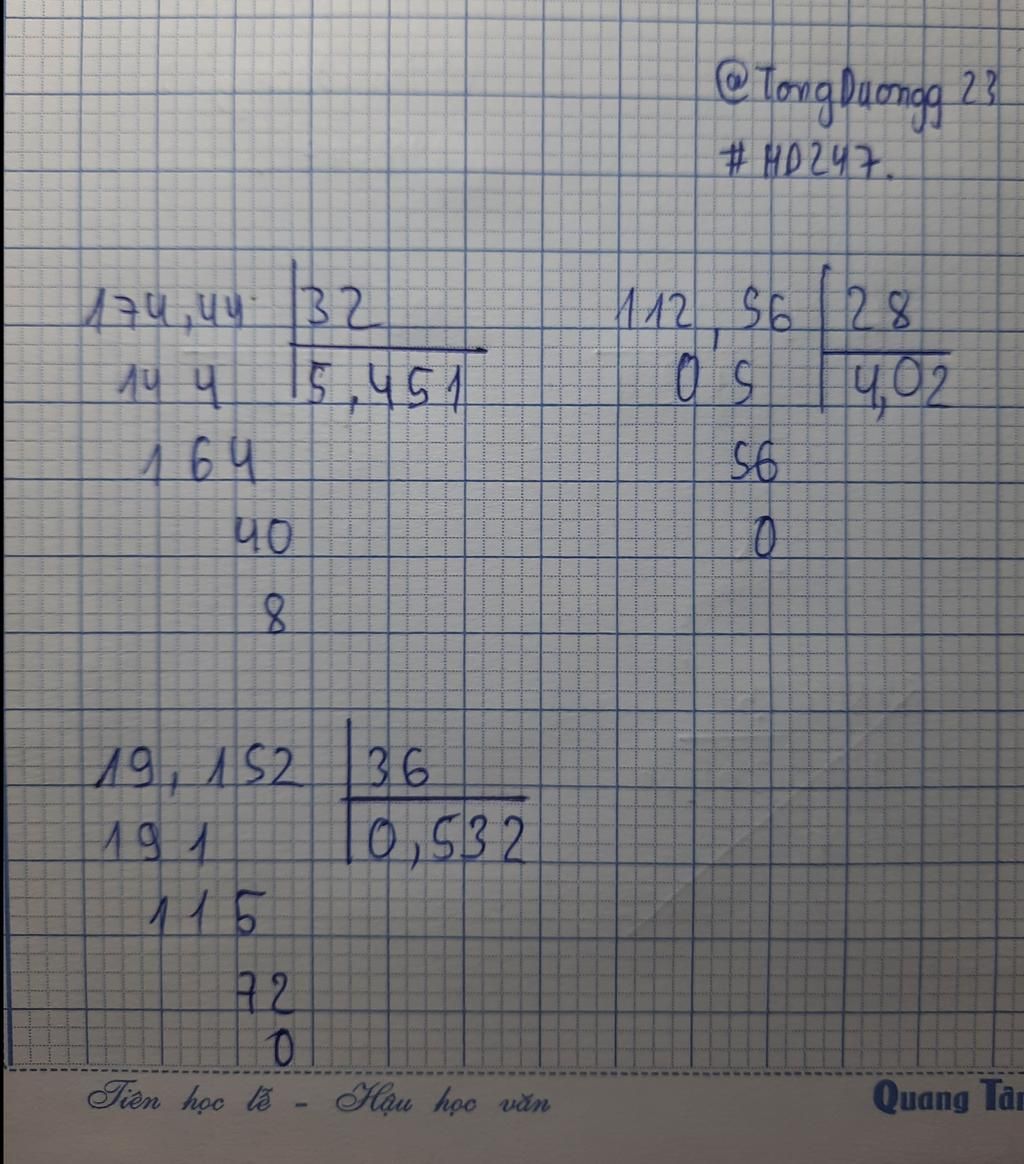 @TongDuongg 23
#HD247.
174,44 32
14 4 5,451
1 64
40
8
112,56 28
0 5 4,02
56
0
19,152 36
19 1 0,532
1 15
72
0
Tiên học lễ - Hậu học văn
Quang